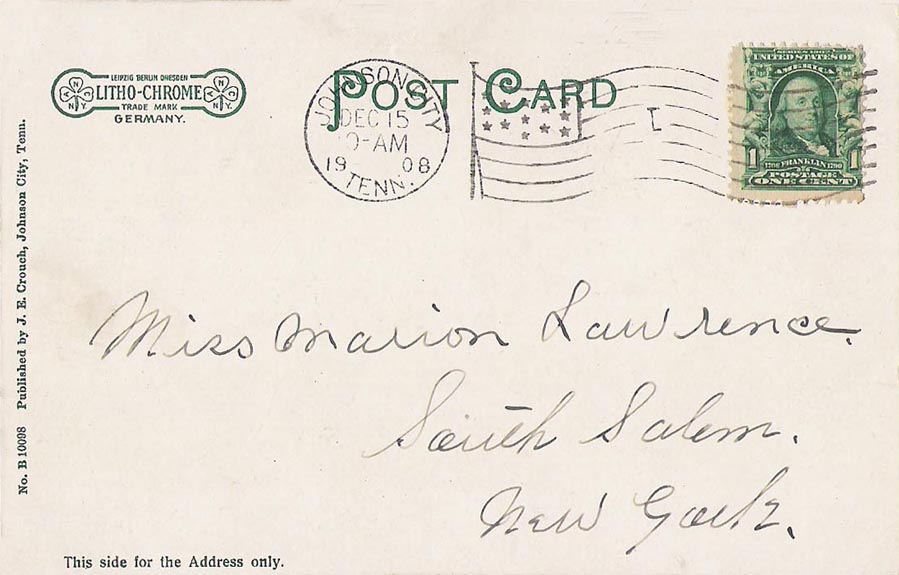 LEIPZIG BERLIN DRESDEN
LITHO-CHROME
TRADE MARK
GERMANY.
N Y N Y
POST CARD
JOHNSON CITY
DEC 15
0-AM
19 08
TENN.
UNITED STATES OF
AMERICA
1 FRANKLIN 1
POSTAGE
ONE CENT
No. B 10098 Published by J. E. Crouch, Johnson City, Tenn.
Miss Marion Lawrence.
South Salem.
New York.
This side for the Address only.